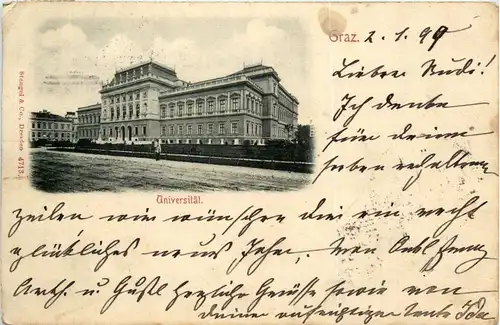 Graz. 2. 1. 99
Stengel & Co., Dresden 4713.
Lieber Rudi!
Ich danke
für deine
lieben erhaltenen
Universität.
Zeilen und wünsche dir ein recht
glückliches neues Jahr. Von
u. Gustl herzliche Grüsse sowie von
deiner aufrichtigen Tante Ida